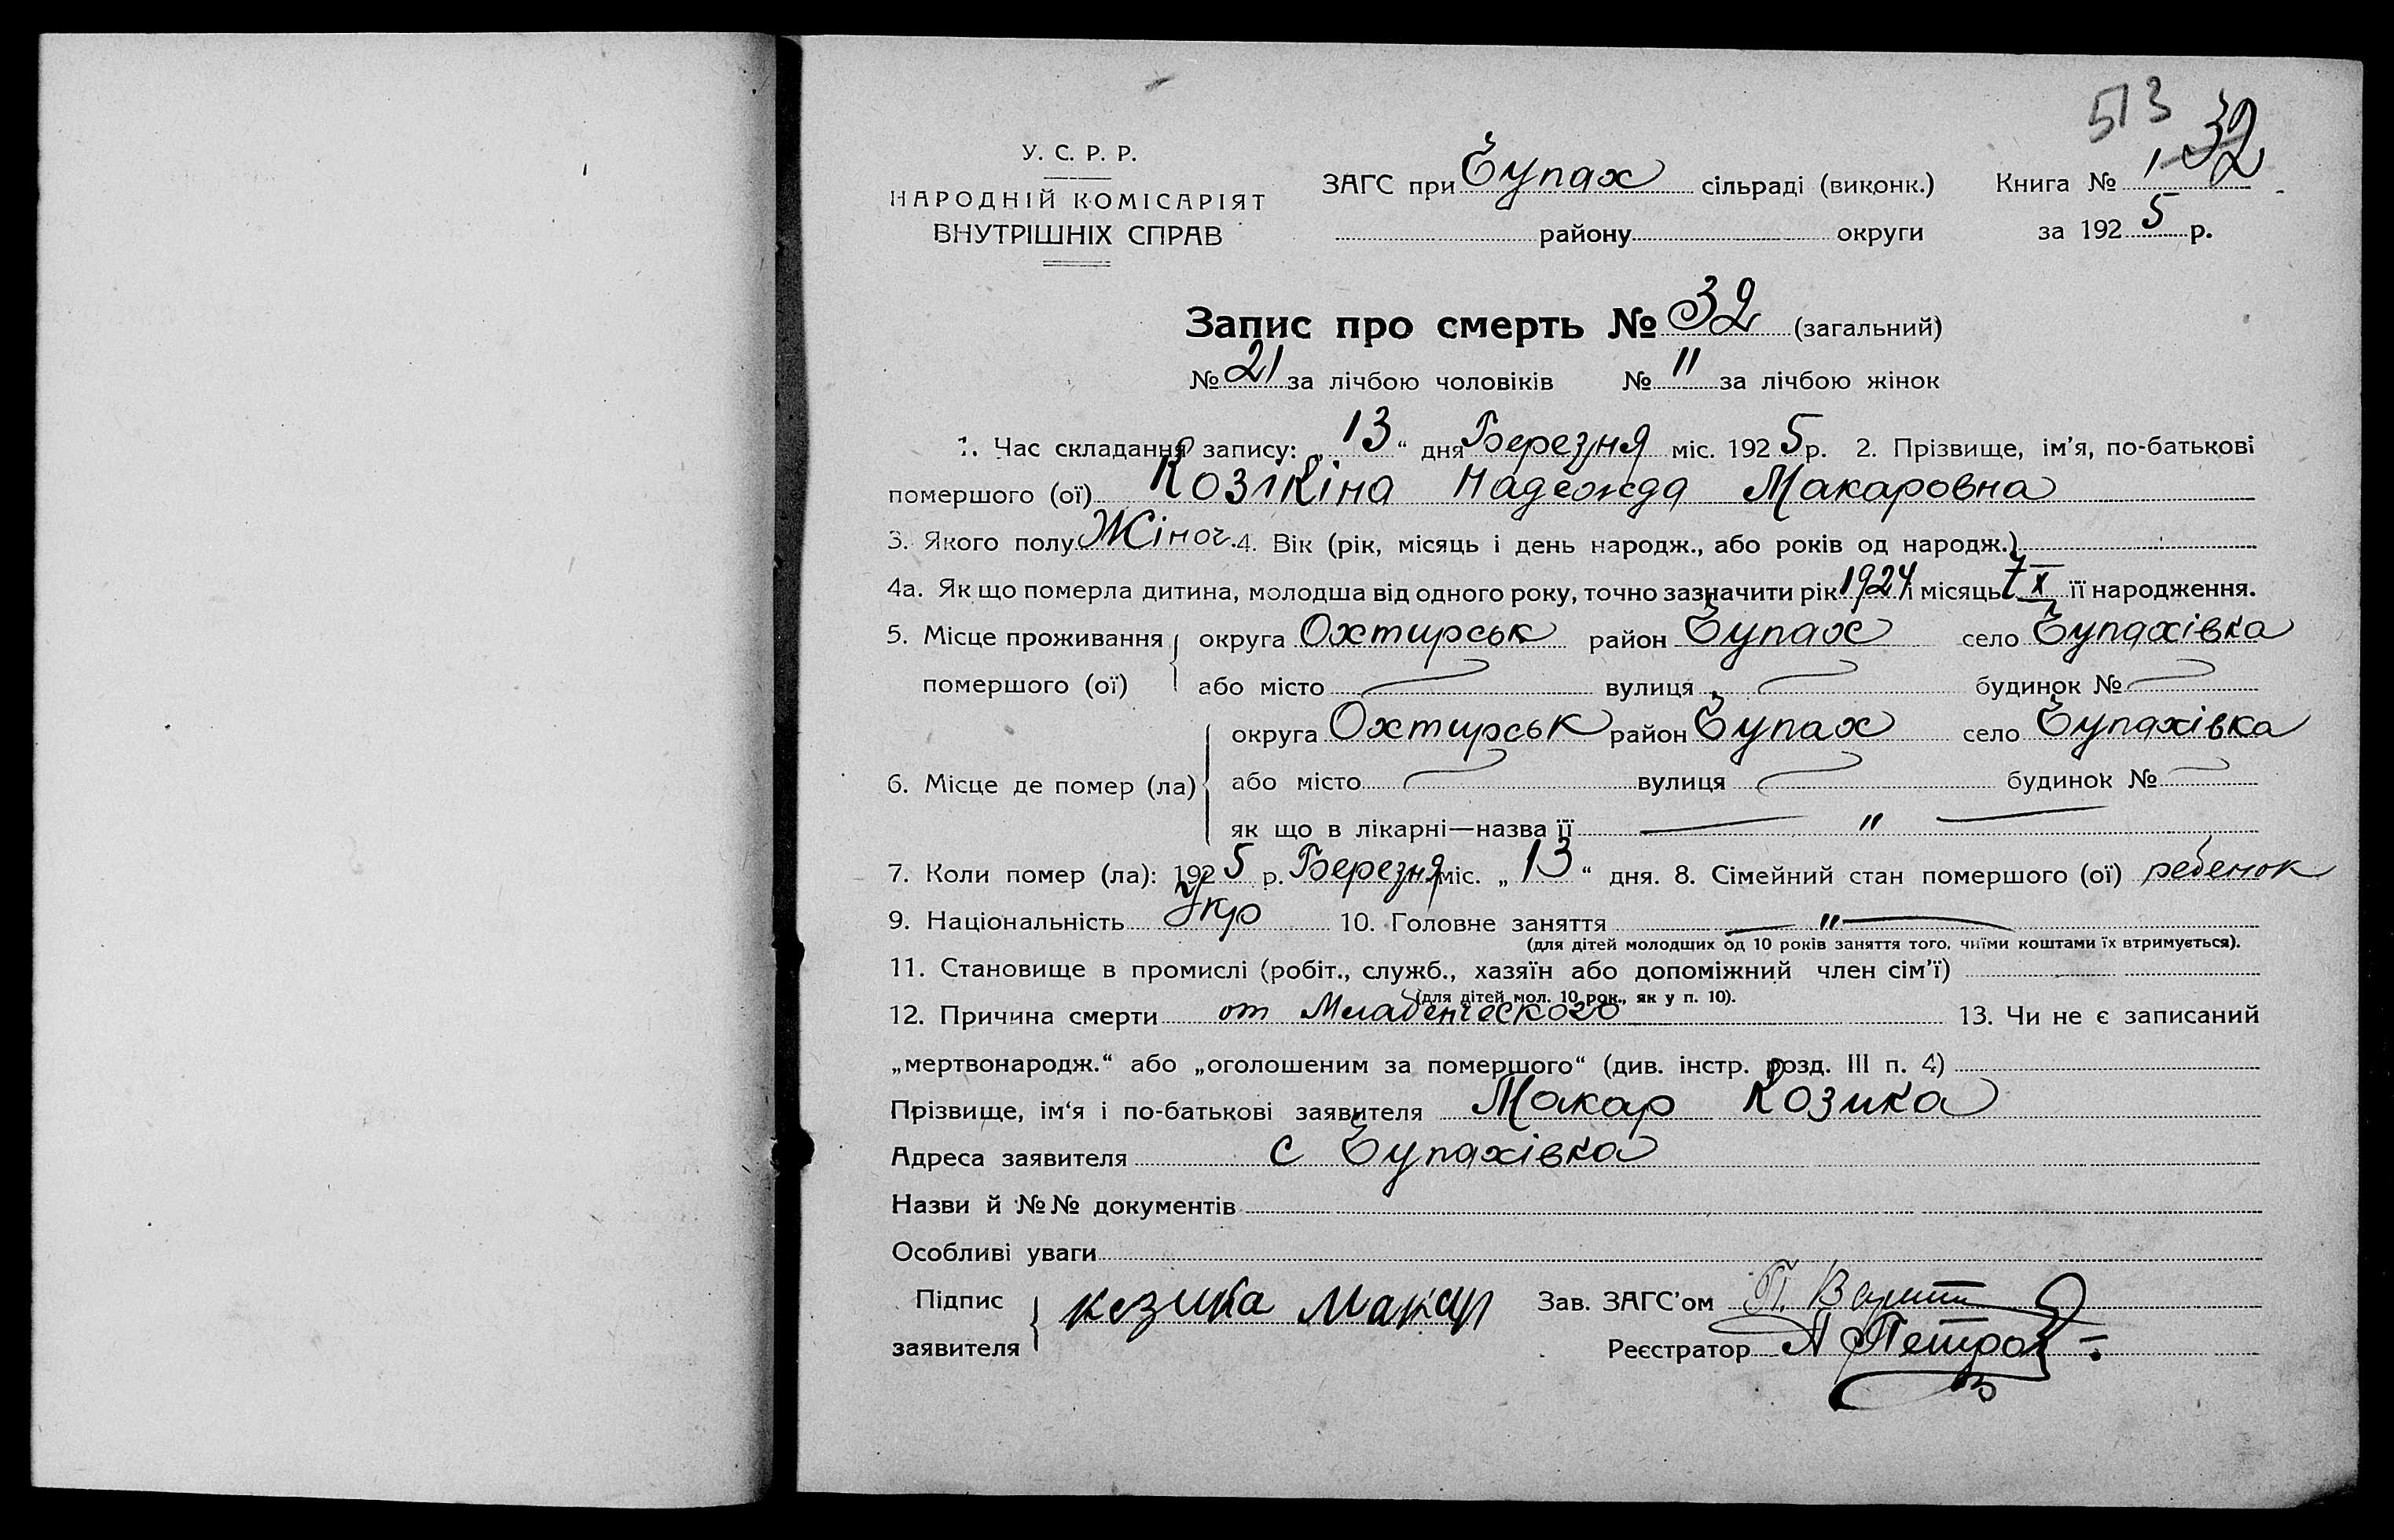 513
У. С. Р. Р.
НАРОДНІЙ КОМІСАРІЯТ
ВНУТРІШНІХ СПРАВ
ЗАГС при Чупах сільраді (виконк.) Книга № 1 32
району округи за 1925 р.
Запис про смерть № 32 (загальний)
№ 21 за лічбою чоловіків № 11 за лічбою жінок
1. Час складання запису: „13“ дня Березня міс. 1925 р. 2. Прізвище, ім’я, по-батькові
помершого (ої) Козікіна Надежда Макаровна
3. Якого полу Жіноч. 4. Вік (рік, місяць і день народж., або років од народж.)
4а. Як що померла дитина, молодша від одного року, точно зазначити рік 1924 і місяць 7 X її народження.
5. Місце проживання округа Охтирськ район Чупах село Чупахівка
помершого (ої) або місто вулиця будинок №
округа Охтирськ район Чупах село Чупахівка
6. Місце де помер (ла) або місто вулиця будинок №
як що в лікарні—назва її — " —
7. Коли помер (ла): 1925 р. Березня міс. „13“ дня. 8. Сімейний стан помершого (ої) ребенок
9. Національність Укр 10. Головне заняття — " —
(для дітей молодших од 10 років заняття того, чиїми коштами їх втримується).
11. Становище в промислі (робіт., служб., хазяїн або допоміжний член сім’ї)
(для дітей мол. 10 рок., як у п. 10).
12. Причина смерти от Младенческого 13. Чи не є записаний
„мертвонародж.“ або „оголошеним за помершого“ (див. інстр. розд. III п. 4)
Прізвище, ім‘я і по-батькові заявителя Макар Козика
Адреса заявителя с Чупахівка
Назви й №№ документів
Особливі уваги
Підпис заявителя Козика Макар Зав. ЗАГС’ом П.
Реєстратор А Петров